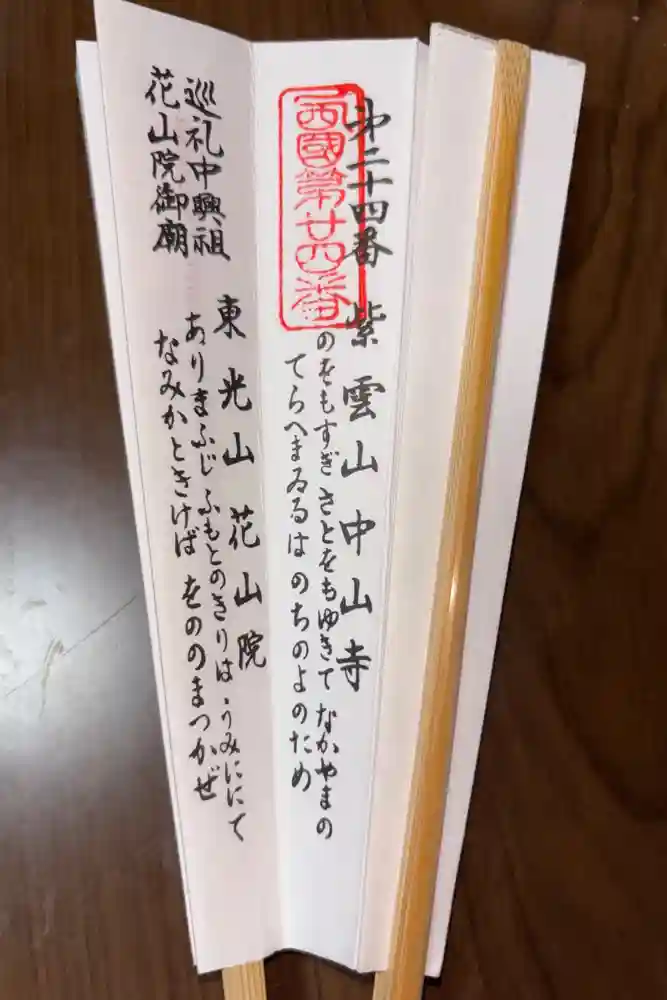 第二十四番 紫雲山中山寺
西國第廿四番
のをもすぎ さとをもゆきて なかやまの
てらへまゐるは のちのよのため
巡礼中興祖
花山院御廟
東光山花山院
ありまふじ ふもとのきりは うみににて
なみかときけば をののまつかぜ